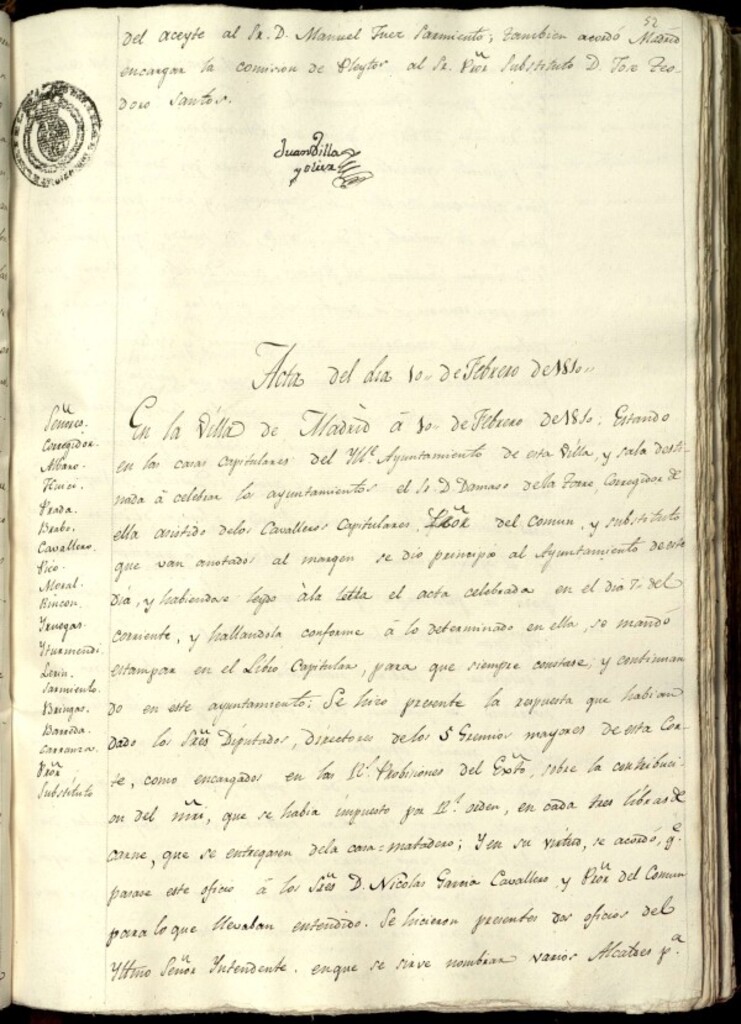 52
del aceyte al Sr. D. Manuel Fnez Sarmiento; tambien acordó Madrid
encargar la comision de Pleytos al Sr. Pror Substituto D. Jose Teo-
doro Santos.
Juan Villa
y olier
Acta del dia 10 de Febrero de 1810
En la Villa de Madrid á 10 de Febrero de 1810. Estando
en las casas capitulares del Ylle Ayuntamiento de esta Villa, y sala desti-
nada á celebrar los ayuntamientos el Sr. D. Damaso de la Torre, Corregidor de
ella asistido delos Cavalleros Capitulares, Pror del Comun, y substituto
que van anotados al margen se dio principio al Ayuntamiento de este
dia, y habiendose leydo àla letra el acta celebrada en el dia 7 del
corriente, y hallandola conforme á lo determinado en ella, se mandó
estampar en el Libro Capitular, para que siempre constase; y continuan
do en este ayuntamiento: Se hizo presente la respuesta que habian
dado los Sres Diputados, directores delos 5 Gremios mayores de esta Cor-
te, como encargados en las Rs. Probisiones del Exto, sobre la contribuci-
on del mri, que se habia impuesto por Rl. orden, en cada tres libras de
carne, que se entregasen dela casa=matadero; Y en su virtud, se acordó, qe.
pasase este oficio á los Sres D. Nicolas Garcia Cavallero, y Pror del Comun
para lo que llevaban entendido. Se hicieron presentes dos oficios del
Yltmo Señor Yntendente. en que se sirve nombrar varios Alcaldes pa.
Señores.
Corregidor.
Albaro.
Prada.
Cavallero.
Pico.
Moral.
Rincon.
Yruegas.
Yturmendi.
Lerin.
Sarmiento.
Bringas.
Barreda.
Carranza.
Pror
Substituto